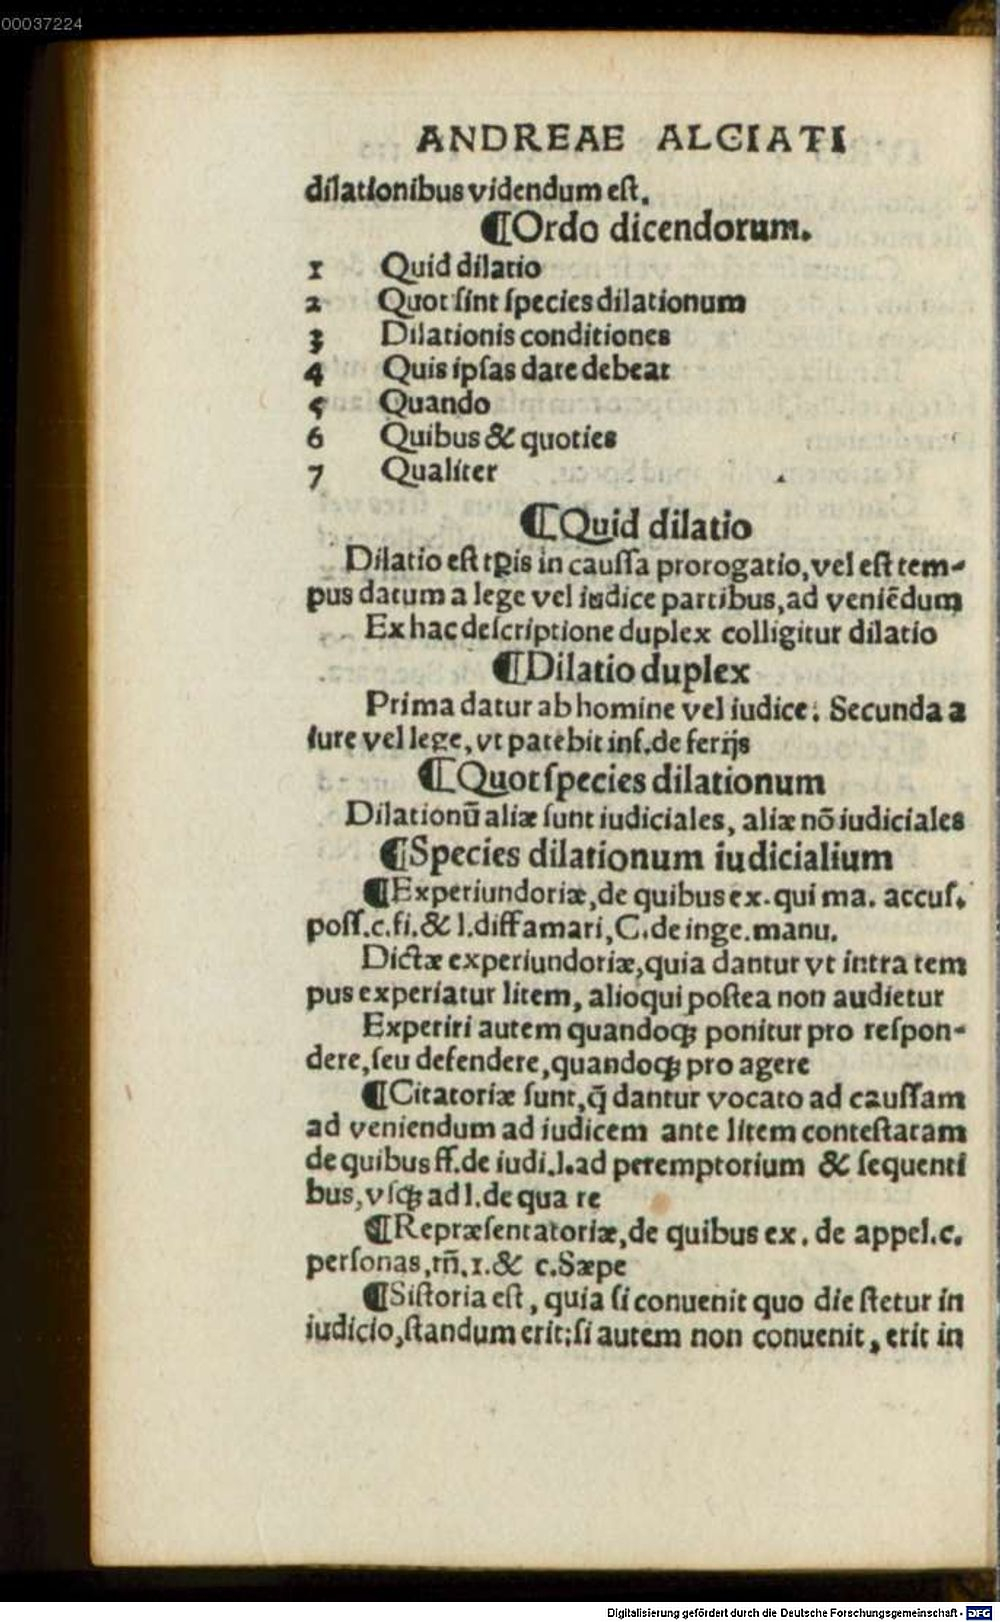 00037224
ANDREAE ALCIATI
dilationibus videndum eſt.
¶Ordo dicendorum.
1 Quid dilatio
2 Quot ſint ſpecies dilationum
3 Dilationis conditiones
4 Quis ipſas dare debeat
5 Quando
6 Quibus & quoties
7 Qualiter
¶Quid dilatio
Dilatio eſt tꝑis in cauſſa prorogatio, vel eſt tem-
pus datum a lege vel iudice partibus, ad veniēdum
Ex hac deſcriptione duplex colligitur dilatio
¶Dilatio duplex
Prima datur ab homine vel iudice: Secunda a
iure vel lege, vt patebit inf. de ferijs
¶Quot ſpecies dilationum
Dilationū aliæ ſunt iudiciales, aliæ nō iudiciales
¶Species dilationum iudicialium
¶Experiundoriæ, de quibus ex. qui ma. accuſ.
poſſ. c. fi. & l. diffamari, C. de inge. manu.
Dictæ experiundoriæ, quia dantur vt intra tem
pus experiatur litem, alioqui poſtea non audietur
Experiri autem quandoqꝫ ponitur pro reſpon-
dere, ſeu defendere, quandoqꝫ pro agere
¶Citatoriæ ſunt, q̄ dantur vocato ad cauſſam
ad veniendum ad iudicem ante litem conteſtatam
de quibus ff. de iudi. l. ad peremptorium & ſequenti
bus, vſqꝫ ad l. de qua re
¶Repræſentatoriæ, de quibus ex. de appel. c.
perſonas, rn̄. 1. & c. Sæpe
¶Siſtoria eſt, quia ſi conuenit quo die ſtetur in
iudicio, ſtandum erit: ſi autem non conuenit, erit in
Digitalisierung gefördert durch die Deutsche Forschungsgemeinschaft - DFG